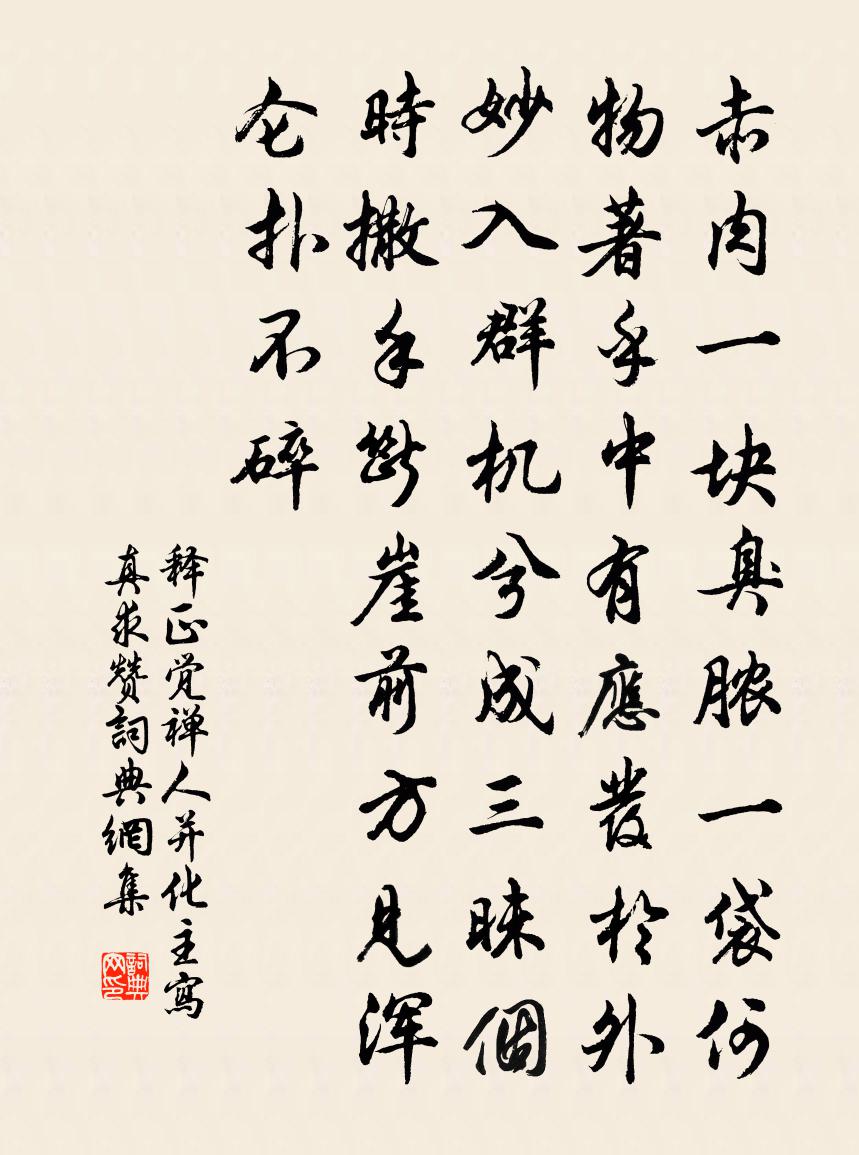 赤肉一块臭脓一袋何
物著乎中有應發於外
妙入群机兮成三昧個
時撒手斷崖前方見浑
仑扑不碎
释正觉禅人并化主寫
真求赞詞典網集
詞典
网印